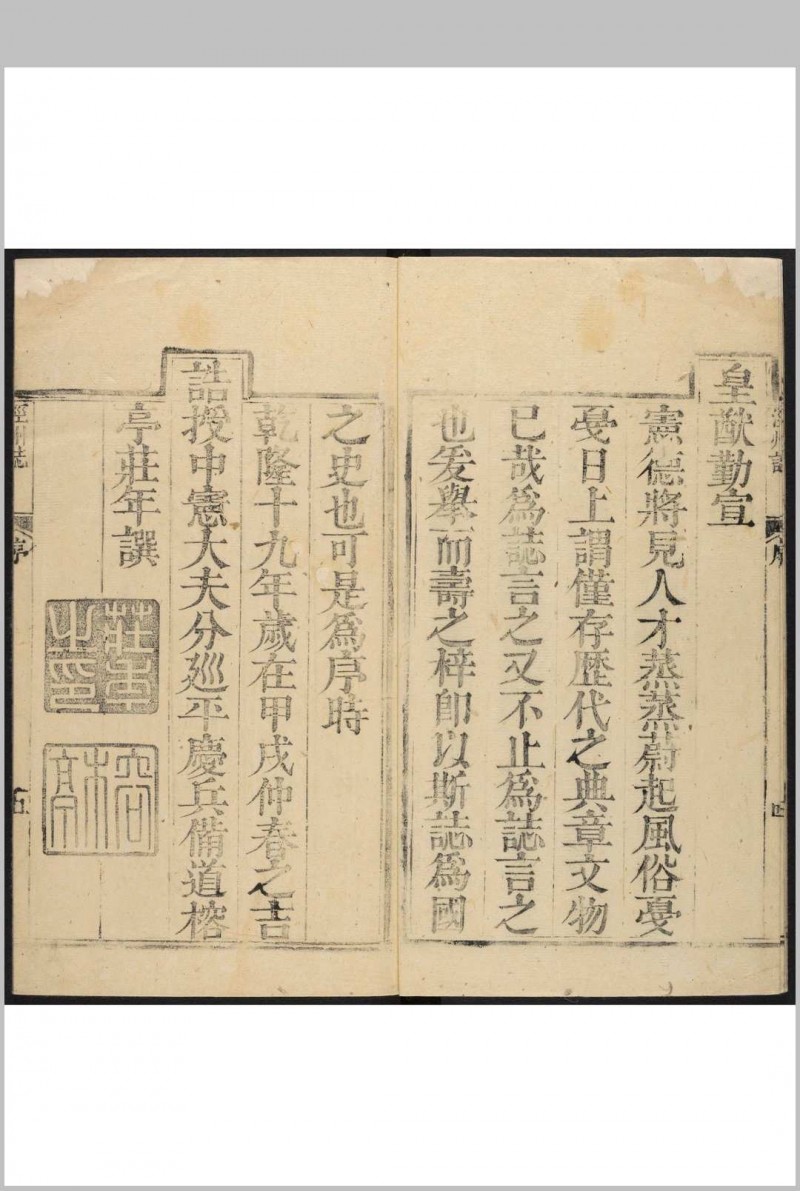 皇猷勤宣
憲德將見人才蒸蒸蔚起風俗戞
戞日上謂僅存歷代之典章文物
已哉為誌言之又不止為誌言之
也爰舉而壽之梓卽以斯誌為國
之史也可是為序時
乾隆十九年歲在甲戌仲春之吉
誥授中憲大夫分廵平慶兵備道榕
亭莊年譔
莊年之印
榕亭
涇州誌
序
四
涇州誌
序
五